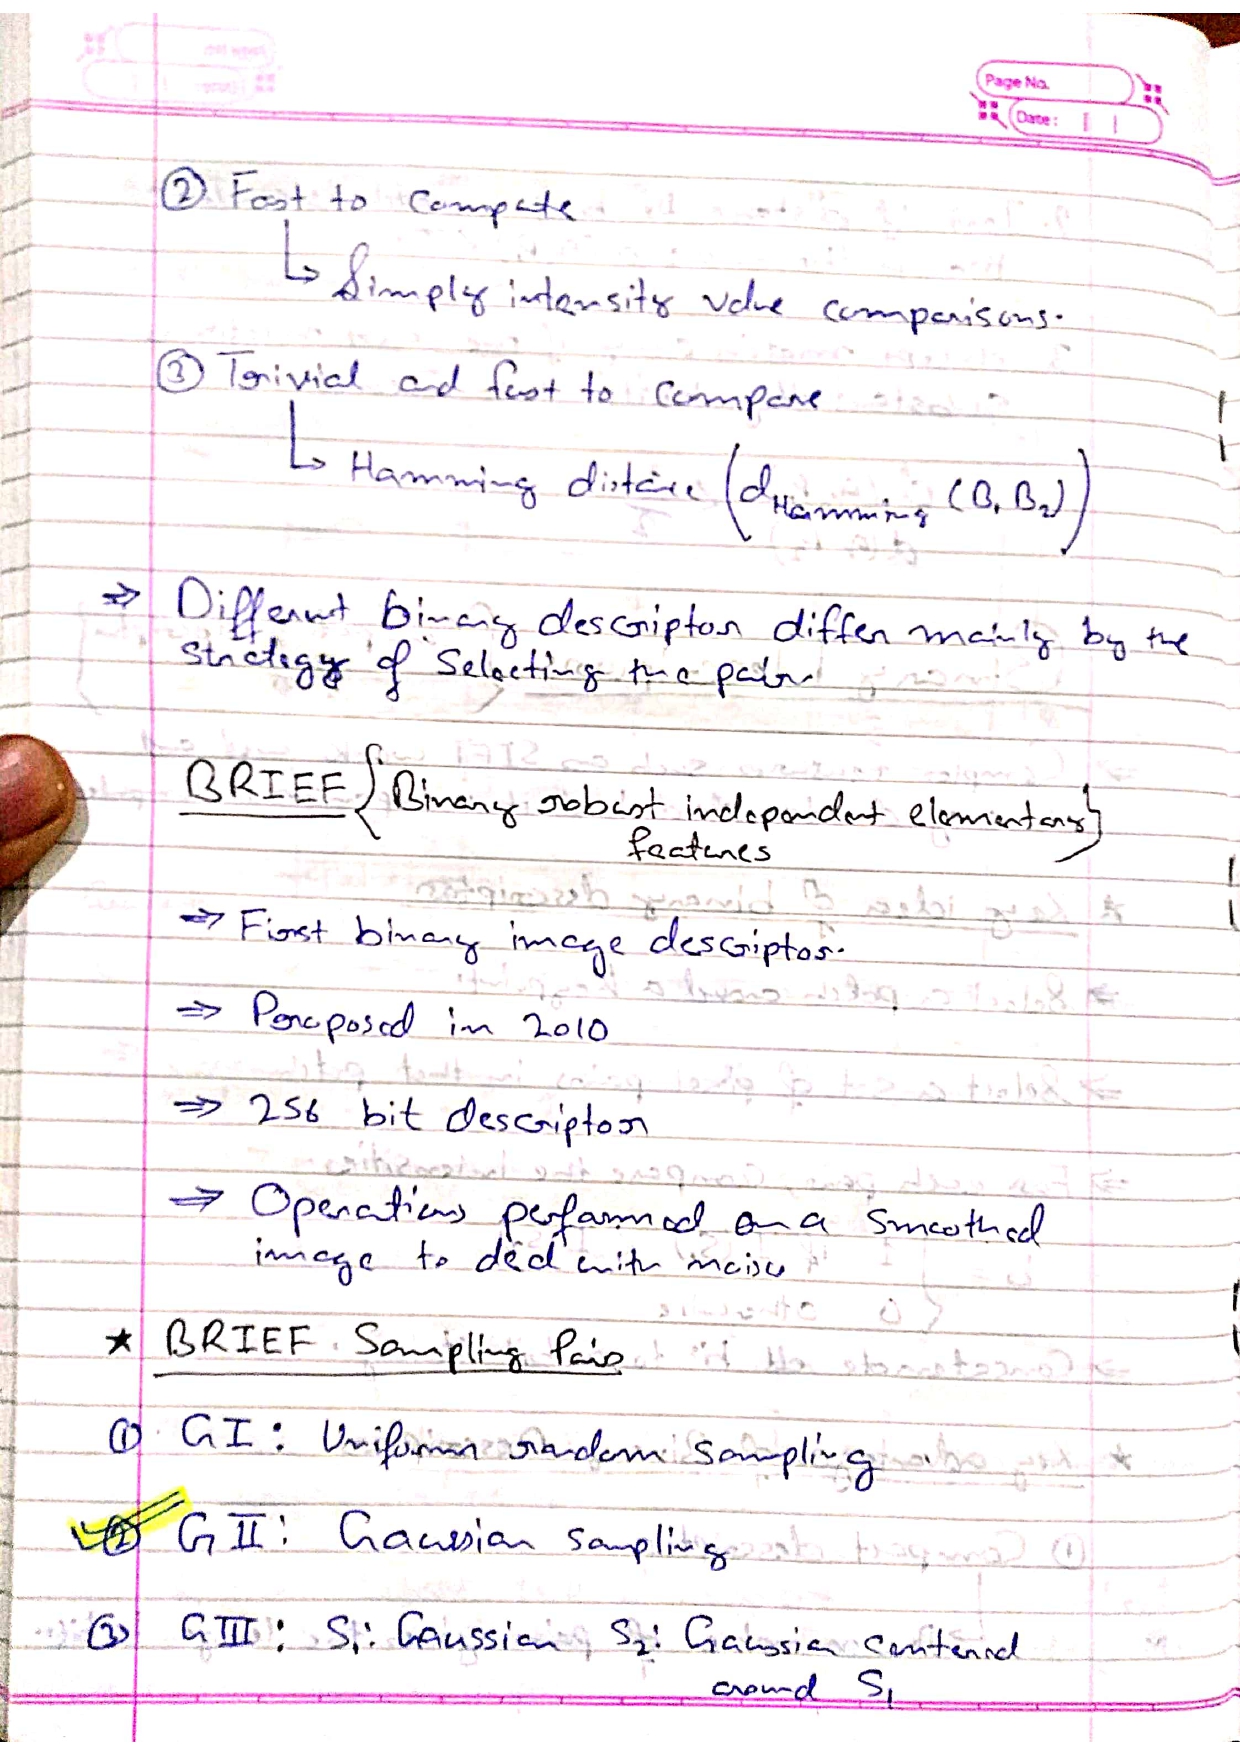 Page No.
Date:
② Fast to compute
↳ Simply intensity value comparisons.
③ Trivial and fast to compare
↳ Hamming distance (d Hamming (B₁ B₂))
⇒ Different binary descriptor differ mainly by the
strategy of selecting the pair
BRIEF {Binary robust independent elementary
features}
⇒ First binary image descriptor.
⇒ Proposed in 2010
⇒ 256 bit descriptor
⇒ Operations performed on a smoothed
image to deal with noise
★ BRIEF Sampling Pair
① GI: Uniform random sampling
② GII: Gaussian sampling
③ GIII: S₁: Gaussian S₂: Gaussian centered
around S₁